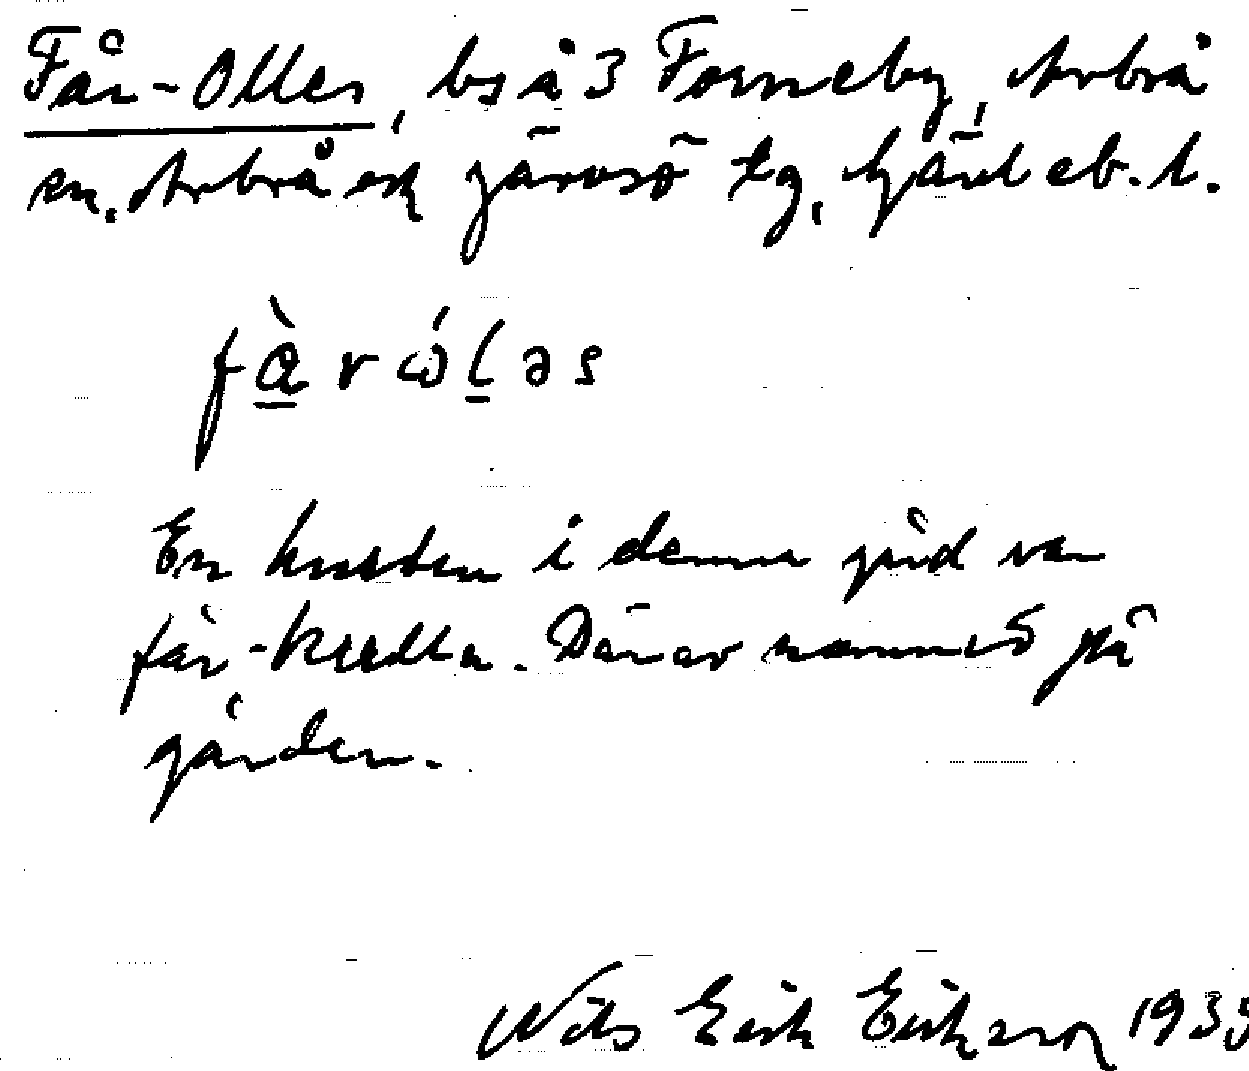 Får-Olles, bs å 3 Forneby, Arbrå
sn. Arbrå och Järvsö tg, Gävleb. l.
fàróləs
En husbon i denna gård var
får-. Därav namnet på
gården.
Nils Erik Eriksson 1935